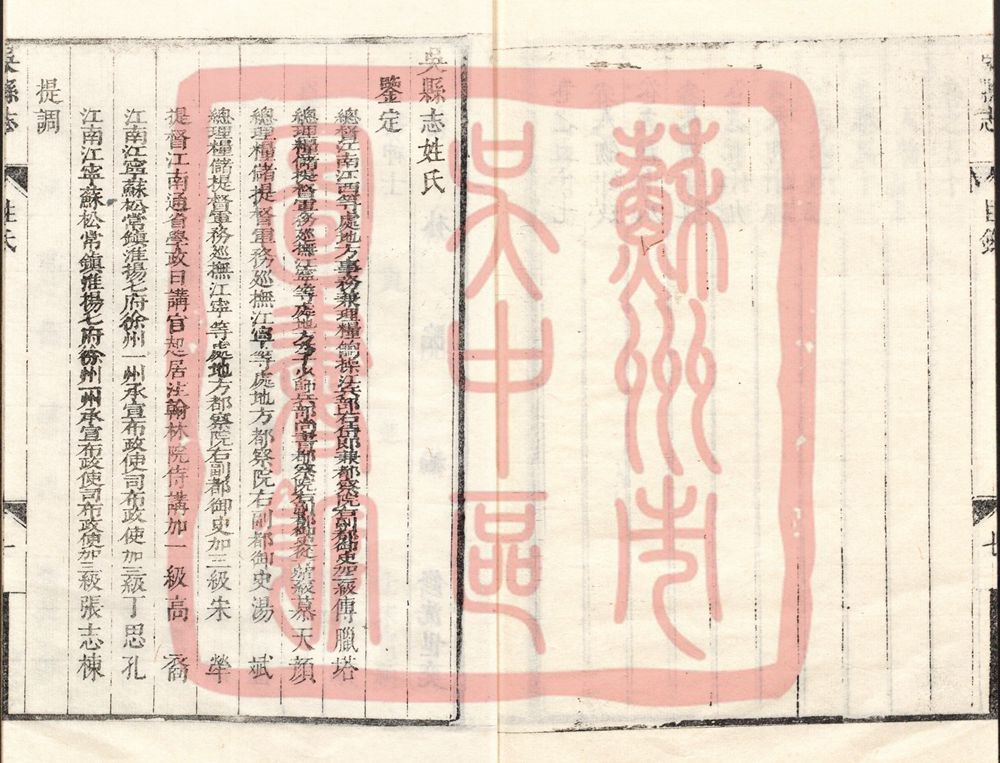 蘇州市
吳中區
圖書館
吳縣志姓氏
鑒定
總督江南江西等處地方事務兼理糧餉操江兵部右侍郎兼都察院右副都御史加三級傅臘塔
總理糧儲提督軍務巡撫江寧等處地方兵部尚書都察院右副都御史慕天顏
總理糧儲提督軍務巡撫江寧等處地方都察院右副都御史湯斌
總理糧儲提督軍務巡撫江寧等處地方都察院右副都御史加三級宋犖
提督江南通省學政日講官起居注翰林院侍講加一級高裔
江南江寧蘇松常鎮淮揚七府徐州一州承宣布政使司布政使加三級丁思孔
江南江寧蘇松常鎮淮揚七府徐州一州承宣布政使司布政使加三級張志棟
提調
吳縣志
姓氏
一